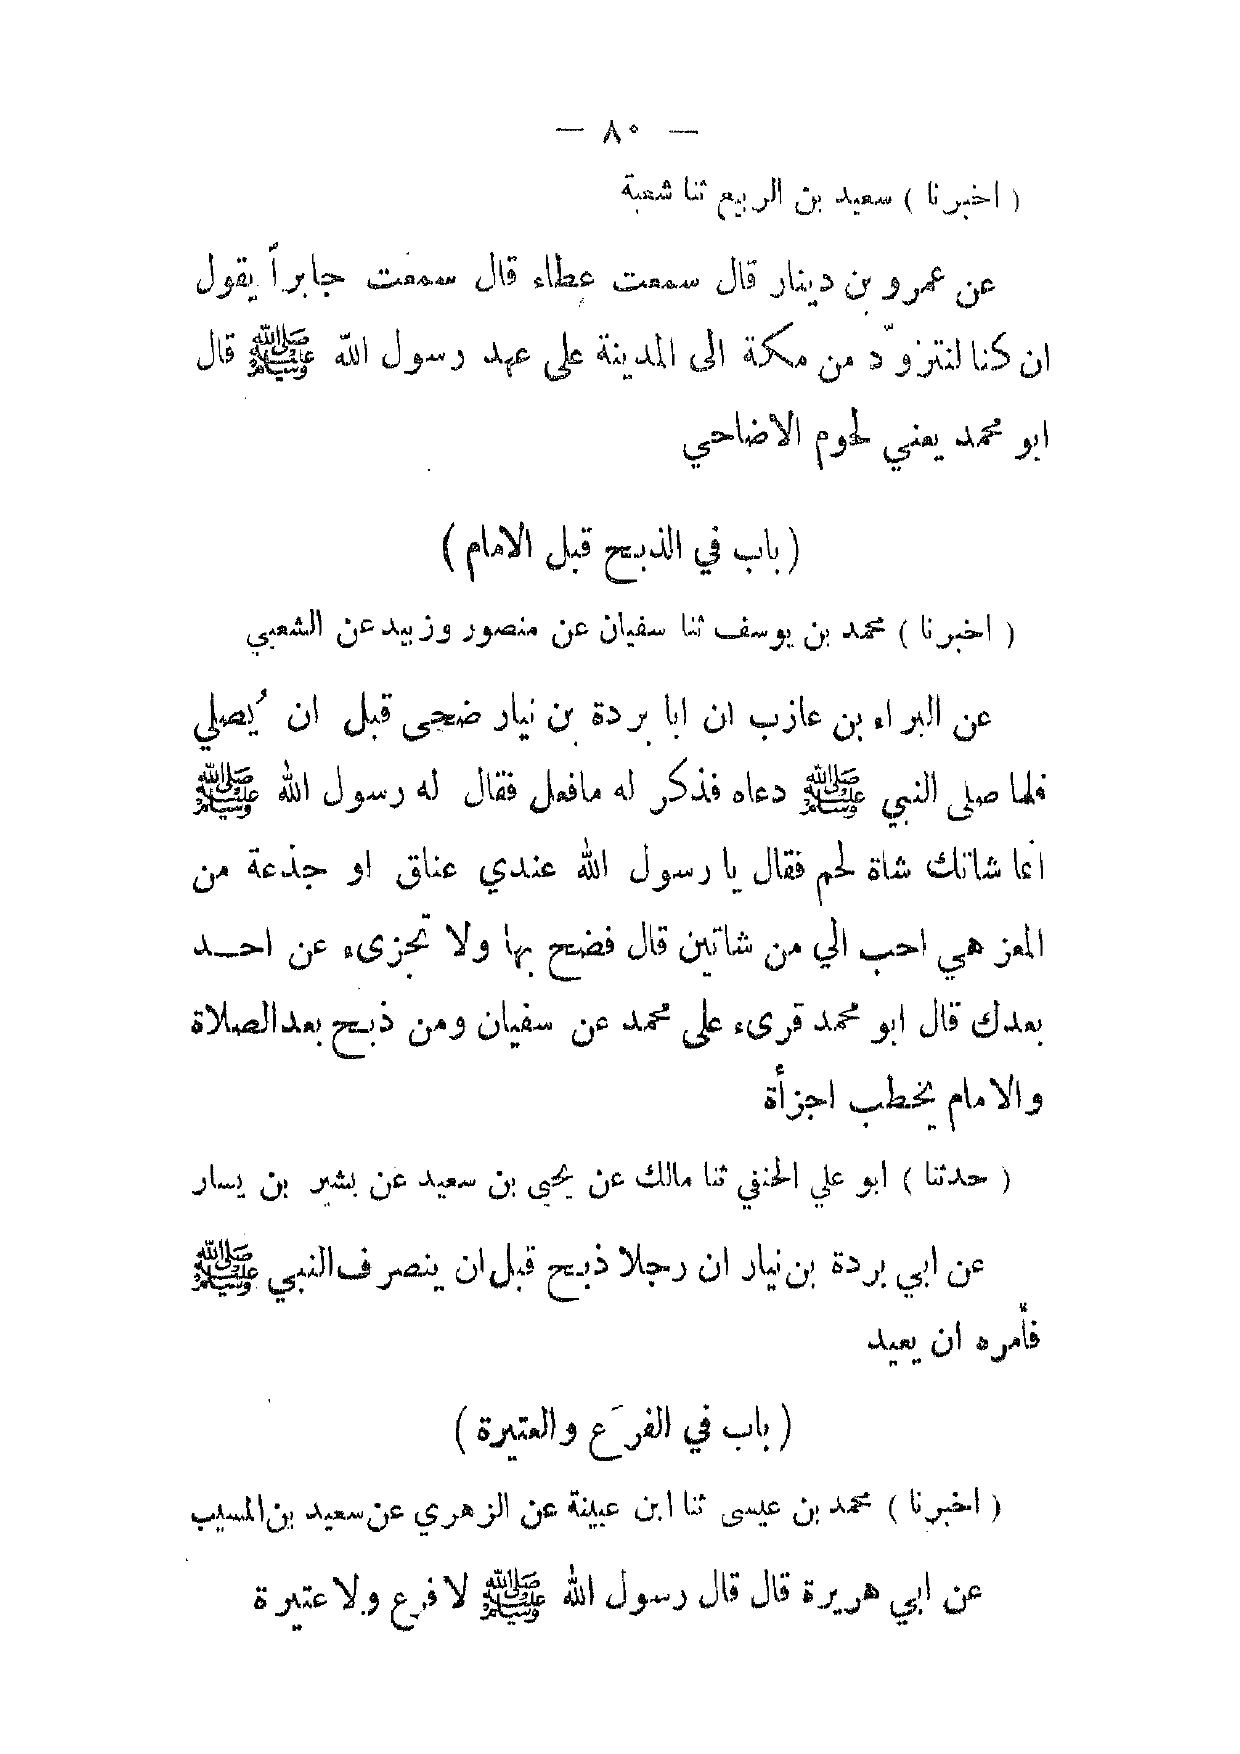 — ٨٠ —
( اخبرنا ) سعيد بن الربيع ثنا شعبة
عن عمرو بن دينار قال سمعت عطاء قال سمعت جابراً يقول
ان كنا لنتزوّد من مكة الى المدينة على عهد رسول الله ﷺ قال
ابو محمد يعني لحوم الاضاحي
( باب في الذبح قبل الامام )
( اخبرنا ) محمد بن يوسف ثنا سفيان عن منصور وزبيد عن الشعبي
عن البراء بن عازب ان ابا بردة بن نيار ضحى قبل ان يُصلي
فلما صلى النبي ﷺ دعاه فذكر له مافعل فقال له رسول الله ﷺ
انما شاتك شاة لحم فقال يا رسول الله عندي عناق او جذعة من
المعز هي احب الي من شاتين قال فضح بها ولا تجزىء عن احـد
بعدك قال ابو محمد قرىء على محمد عن سفيان ومن ذبح بعد الصلاة
والامام يخطب اجزأة
( حدثنا ) ابو علي الحنفي ثنا مالك عن يحيى بن سعيد عن بشير بن يسار
عن ابي بردة بن نيار ان رجلا ذبح قبل ان ينصرف النبي ﷺ
فأمره ان يعيد
( باب في الفرَع والعتيرة )
( اخبرنا ) محمد بن عيسى ثنا ابن عيينة عن الزهري عن سعيد بن المسيب
عن ابي هريرة قال قال رسول الله ﷺ لا فرع ولا عتيرة